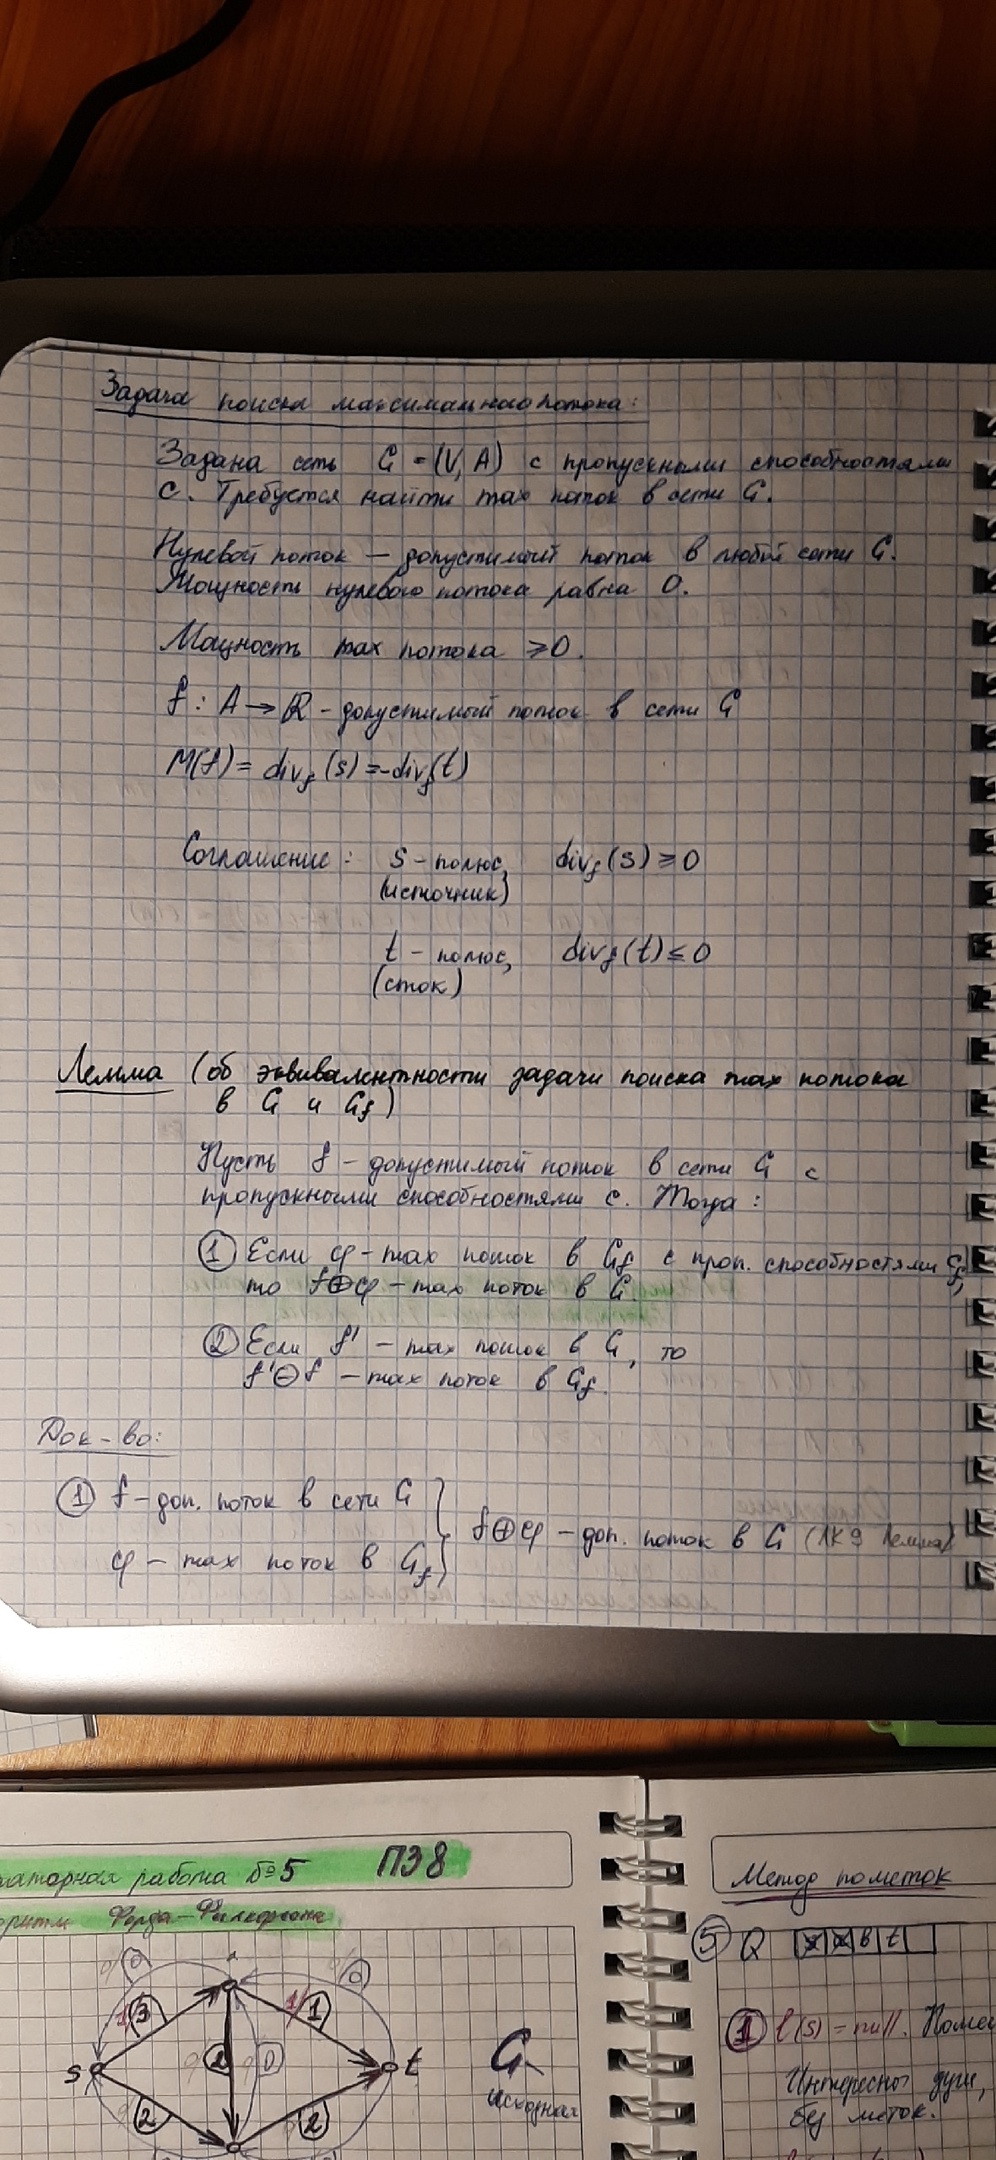 Задача поиска максимального потока:
Задана сеть G = (V, A) с пропускными способностями
c. Требуется найти max поток в сети G.
Нулевой поток — допустимый поток в любой сети G.
Мощность нулевого потока равна 0.
Мощность max потока ≥ 0.
f : A → R - допустимый поток в сети G
M(f) = div_f (s) = -div_f(t)
Соглашение: s - полюс, div_f (s) ≥ 0
(источник)
t - полюс, div_f (t) ≤ 0
(сток)
Лемма (об эквивалентности задачи поиска max потока
в G и G_f)
Пусть f - допустимый поток в сети G с
пропускными способностями c. Тогда:
① Если φ - max поток в G_f с проп. способностями c_f,
то f⊕φ - max поток в G.
② Если f' - max поток в G, то
f'⊖f - max поток в G_f.
Док-во:
① f - доп. поток в сети G
φ - max поток в G_f
f⊕φ - доп. поток в G (ЛК 9 Лемма)
работа №5 ПЗ 8
Форда-Фалкерсона
3
1
s
2
t
2
2
G
исходная
Метод пометок
⑤ Q s s b t
① l(s) = null.
Интересно дуги,
без меток.